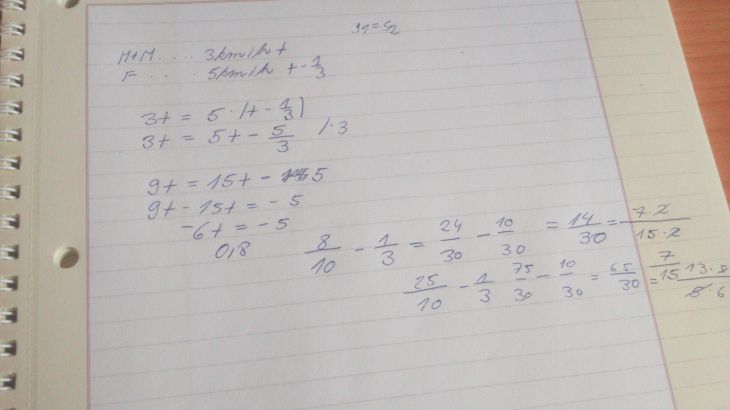 s1=s2
M+M .... 3km/h t
F .... 5km/h t-1/3
3t = 5·(t-1/3)
3t = 5t - 5/3 /·3
9t = 15t - 5
9t - 15t = -5
-6t = -5
0,8
8/10 - 1/3 = 24/30 - 10/30 = 14/30 = 7·2/15·2
7/15
25/10 - 1/3 75/30 - 10/30 = 65/30 =